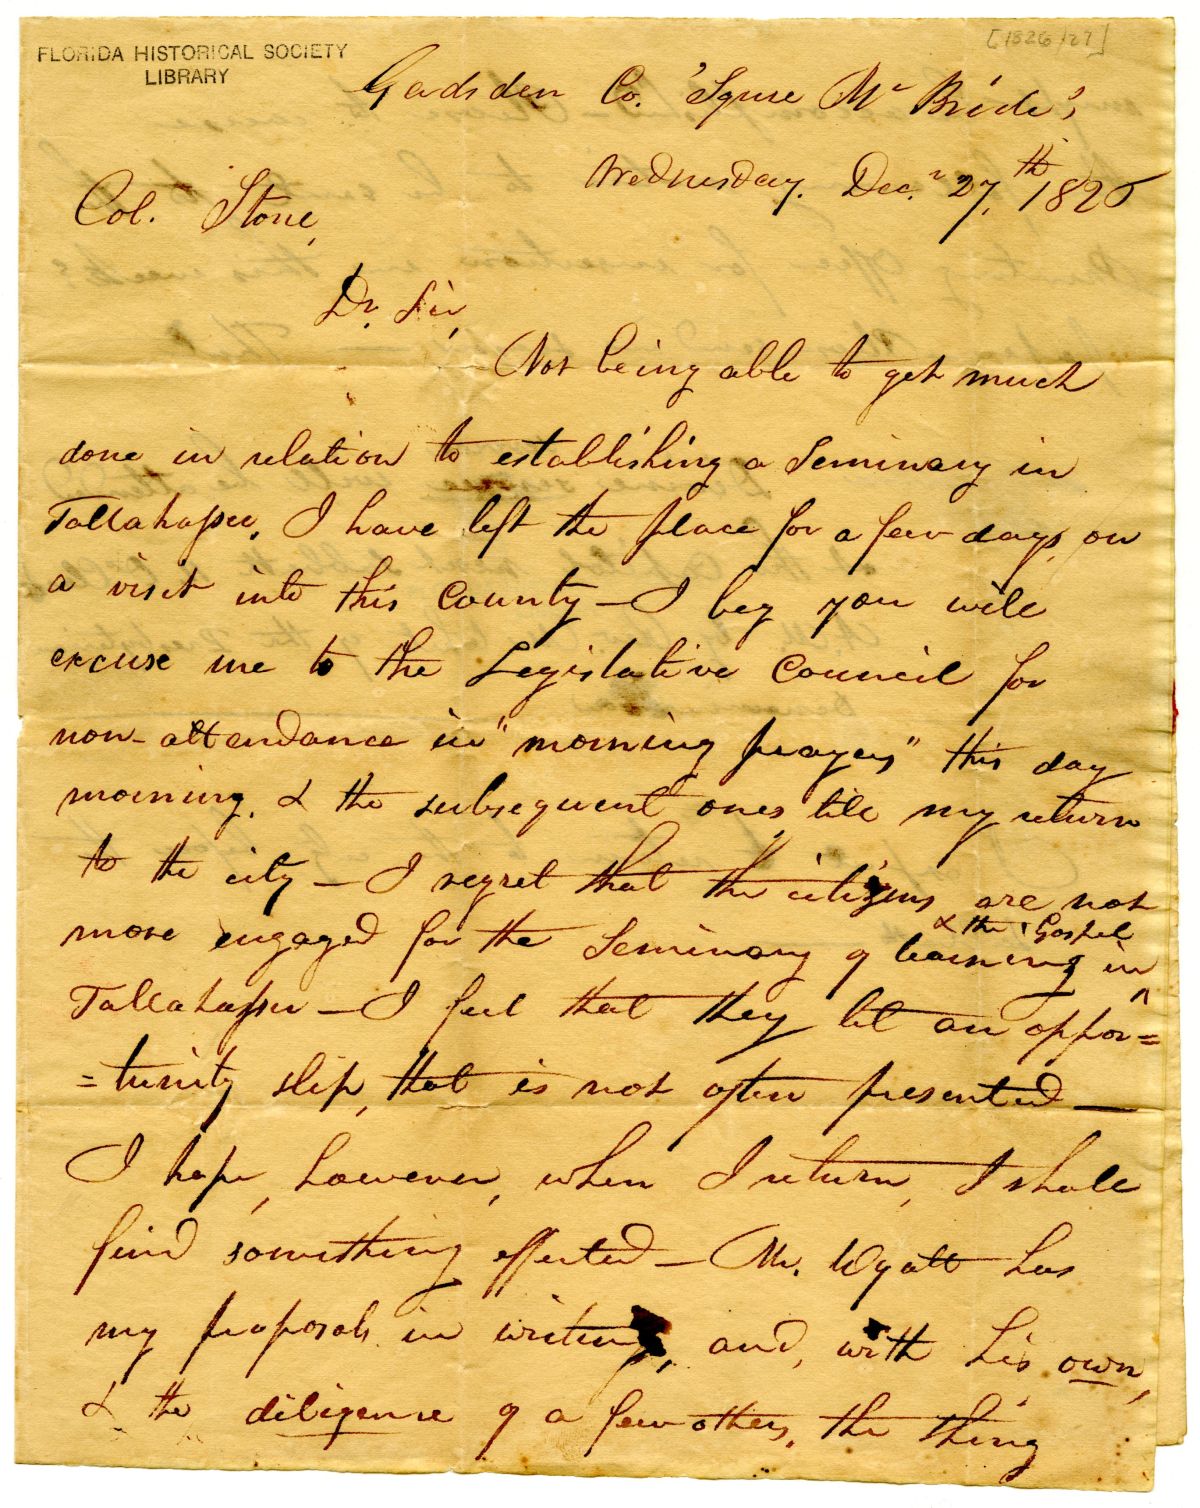 [1826/27]
FLORIDA HISTORICAL SOCIETY
LIBRARY
Gadsden Co. 'Squre Mc Bride's,
Wednesday. Decr. 27,th 1826
Col. Stone,
Dr. Sir,
Not being able to get much
done in relation to establishing a Seminary in
Tallahassee, I have left the place for a few days, on
a visit into this County – I beg you will
excuse me to the Legislative Council for
non-attendance in "morning prayers" this day
morning, & the subsequent ones, till my return
to the city – I regret that the citizens are not
more engaged for the Seminary of learning & the Gospel in
Tallahassee – I feel that they let an oppor=
=tunity slip, that is not often presented –
I hope, however, when I return, I shall
find something effected – Mr. Wyatt has
my proposals in writing, and, with his own,
& the diligence of a few others, the thing